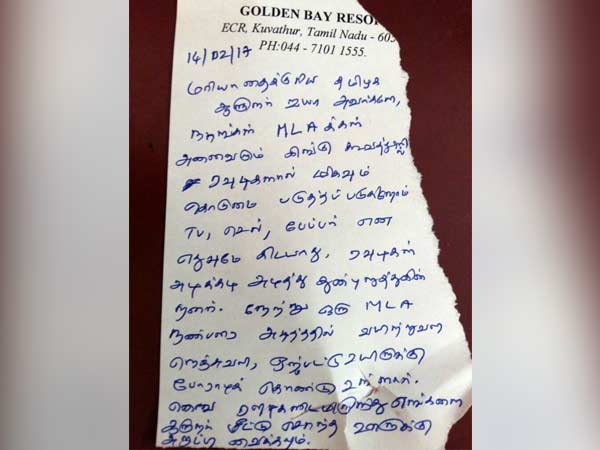 GOLDEN BAY RESO
ECR, Kuvathur, Tamil Nadu - 60
PH:044 - 7101 1555.
14/02/17
மரியாதைக்குரிய தமிழக
ஆளுநர் ஐயா அவர்களே,
நாங்கள் MLA க்கள்
அனைவரும் இங்கு கூவத்தூரில்
ரவுடிகளால் மிகவும்
கொடுமை படுத்தப் படுகிறோம்
TV, செல், பேப்பர் என
எதுவுமே கிடையாது. ரவுடிகள்
அடிக்கடி அடித்து துன்புறுத்துகின்
றனர். நேற்று ஒரு MLA
நண்பரை அடித்ததில் வயிற்றுவலி
நெஞ்சுவலி, ஏற்பட்டு உயிருக்கு
போராடிக் கொண்டு உள்ளார்.
ரவுடிகளிடமிருந்து எங்களை
மீட்டு சொந்த ஊருக்கு
அனுப்பி வைக்கவும்.